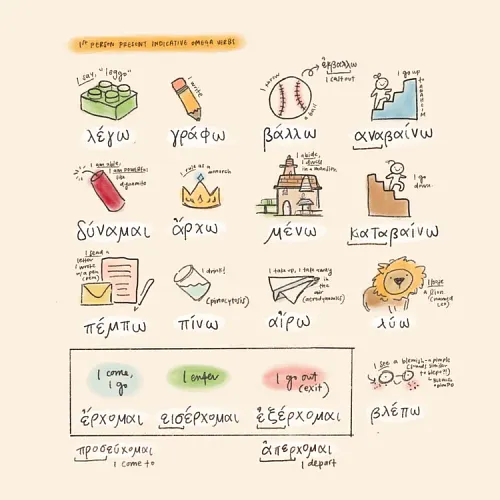 1st PERSON PRESENT INDICATIVE OMEGA VERBS
I say, "leggo"
λέγω
I write
γράφω
I throw
a ball
βάλλω
ἐκβάλλω
I cast out
I go up
αναβαίνω
I am able,
I am powerful
like
dynamite
δύναμαι
I rule as a
monarch
ἄρχω
I abide,
I dwell
in a mansion
μένω
I go
down
καταβαίνω
I send a
letter
I wrote
w/a pen
πέμπω
I drink!
(pinocytosis)
πίνω
I take up, I take away
in the
air
(aerodynamics)
αἴρω
I loose
a lion
λύω
I come,
I go
ἔρχομαι
I enter
εισέρχομαι
I go out
(exit)
ἐξέρχομαι
I see a blemish-a pimple
(sounds similar
to blepo!!)
βλέπω
προσεύχομαι
I come to
ἀπερχομαι
I depart